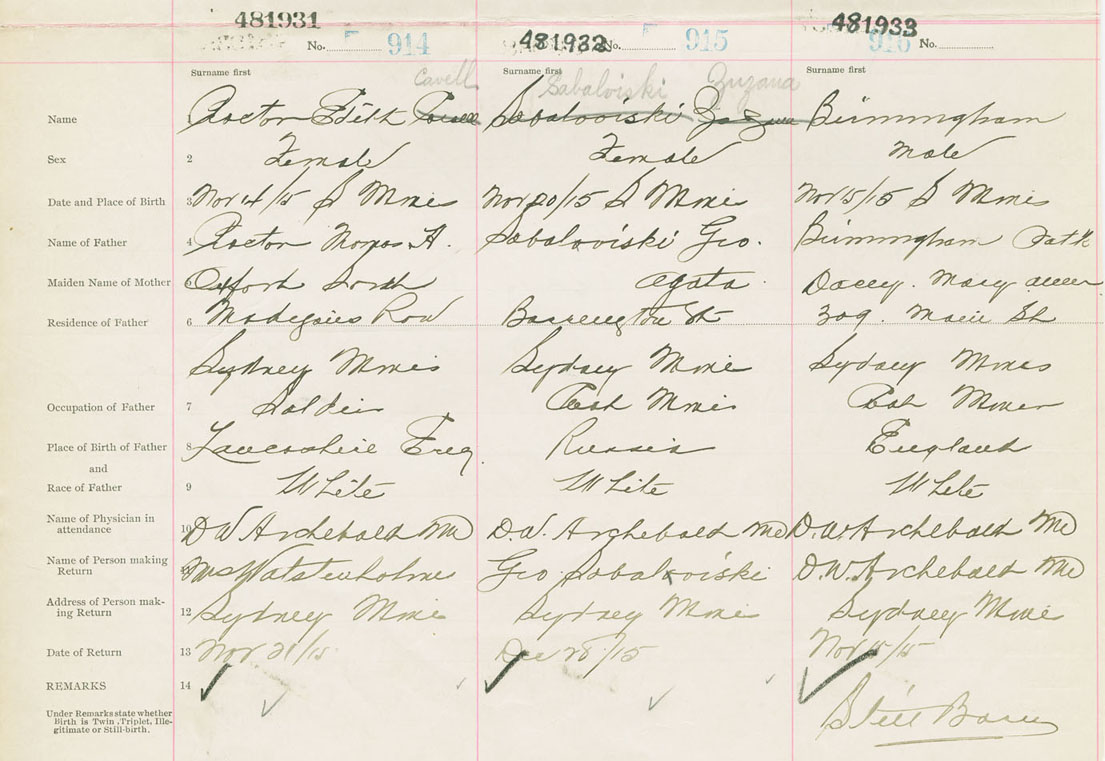 481931 481932 481933
No. 914 No. 915 916 No.
Surname first Cavell Surname first Sabaloviski Zuzana Surname first
Name Proctor Edith Cavell Sobaloviski Birmingham
Sex 2 Female Female Male
Date and Place of Birth 3 Nov 14/15 S Mines Nov 20/15 S Mines Nov 5/15 S Mines
Name of Father 4 Proctor A. Sobaloviski Geo. Birmingham
Maiden Name of Mother 5 Sarah Agata. Mary
Residence of Father 6 Row Barrington St 309. Main St
Sydney Mines Sydney Mines Sydney Mines
Occupation of Father 7 Soldier Mines Miner
Place of Birth of Father 8 Lancashire Eng Russia England
and
Race of Father 9 White White White
Name of Physician in
attendance 10 D W Archebald MD D. W. Archebald MD D. W Archebald MD
Name of Person making
Return 11 Geo Sobaloviski D. W. Archebald MD
Address of Person mak-
ing Return 12 Sydney Mines Sydney Mines Sydney Mines
Date of Return 13 Nov /15 Dec 28/15 Nov /15
REMARKS 14
Under Remarks state whether
Birth is Twin, Triplet, Ille-
gitimate or Still-birth.
Still Born